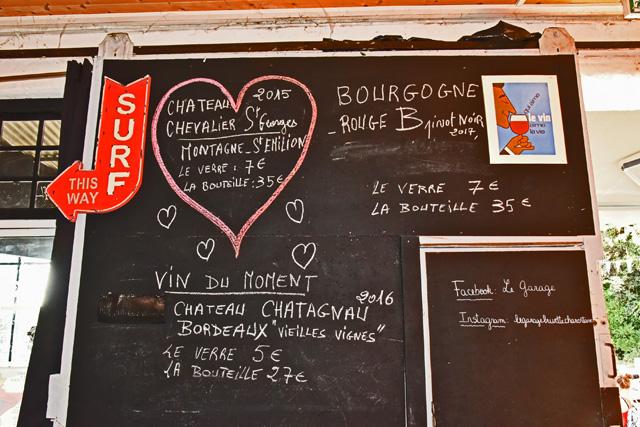 SURF
THIS
WAY
CHATEAU 2015
CHEVALIER St Georges
MONTAGNE_St EMILION
LE VERRE : 7€
LA BOUTEILLE : 35€
BOURGOGNE
_ROUGE B pinot NOIR
2017
LE VERRE 7€
LA BOUTEILLE 35€
qui aime
le vin
aime
la vie
VIN DU MOMENT
CHATEAU CHATAGNAU 2016
BORDEAUX "VIEILLES VIGNES"
LE VERRE 5€
LA BOUTEILLE 27€
Facebook: Le Garage
Instagram: